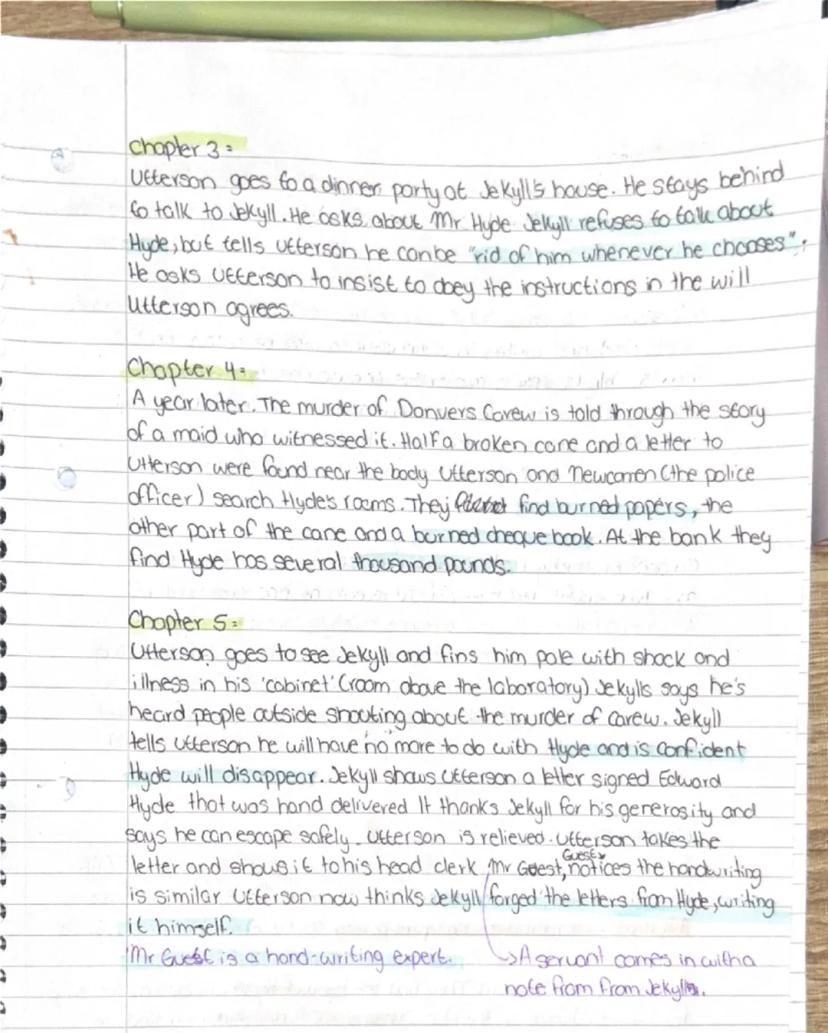 Chapter 3:
Utterson goes to a dinner party at Jekyll's house. He stays behind
to talk to Jekyll. He asks about Mr Hyde. Jekyll refuses to talk about
Hyde, but tells Utterson he can be "rid of him whenever he chooses".
He asks Utterson to insist to obey the instructions in the will
Utterson agrees.
Chapter 4:
A year later. The murder of Danvers Carew is told through the story
of a maid who witnessed it. Half a broken cane and a letter to
Utterson were found near the body Utterson and Newcomen (the police
officer) search Hyde's rooms. They find burned papers, the
other part of the cane and a burned cheque book. At the bank they
find Hyde has several thousand pounds.
Chapter 5:
Utterson goes to see Jekyll and fins him pale with shock and
illness in his 'cabinet' (room above the laboratory) Jekylls says he's
heard people outside shouting about the murder of carew. Jekyll
tells Utterson he will have no more to do with Hyde and is confident
Hyde will disappear. Jekyll shows Utterson a letter signed Edward
Hyde that was hand delivered It thanks Jekyll for his generosity and
says he can escape safely. Utterson is relieved. Utterson takes the
letter and shows it to his head clerk Mr Guest, Guest notices the handwriting
is similar Utterson now thinks Jekyll forged the letters from Hyde, writing
it himself.
Mr Guest is a hand-writing expert.
A servant comes in with a
note from from Jekyll.